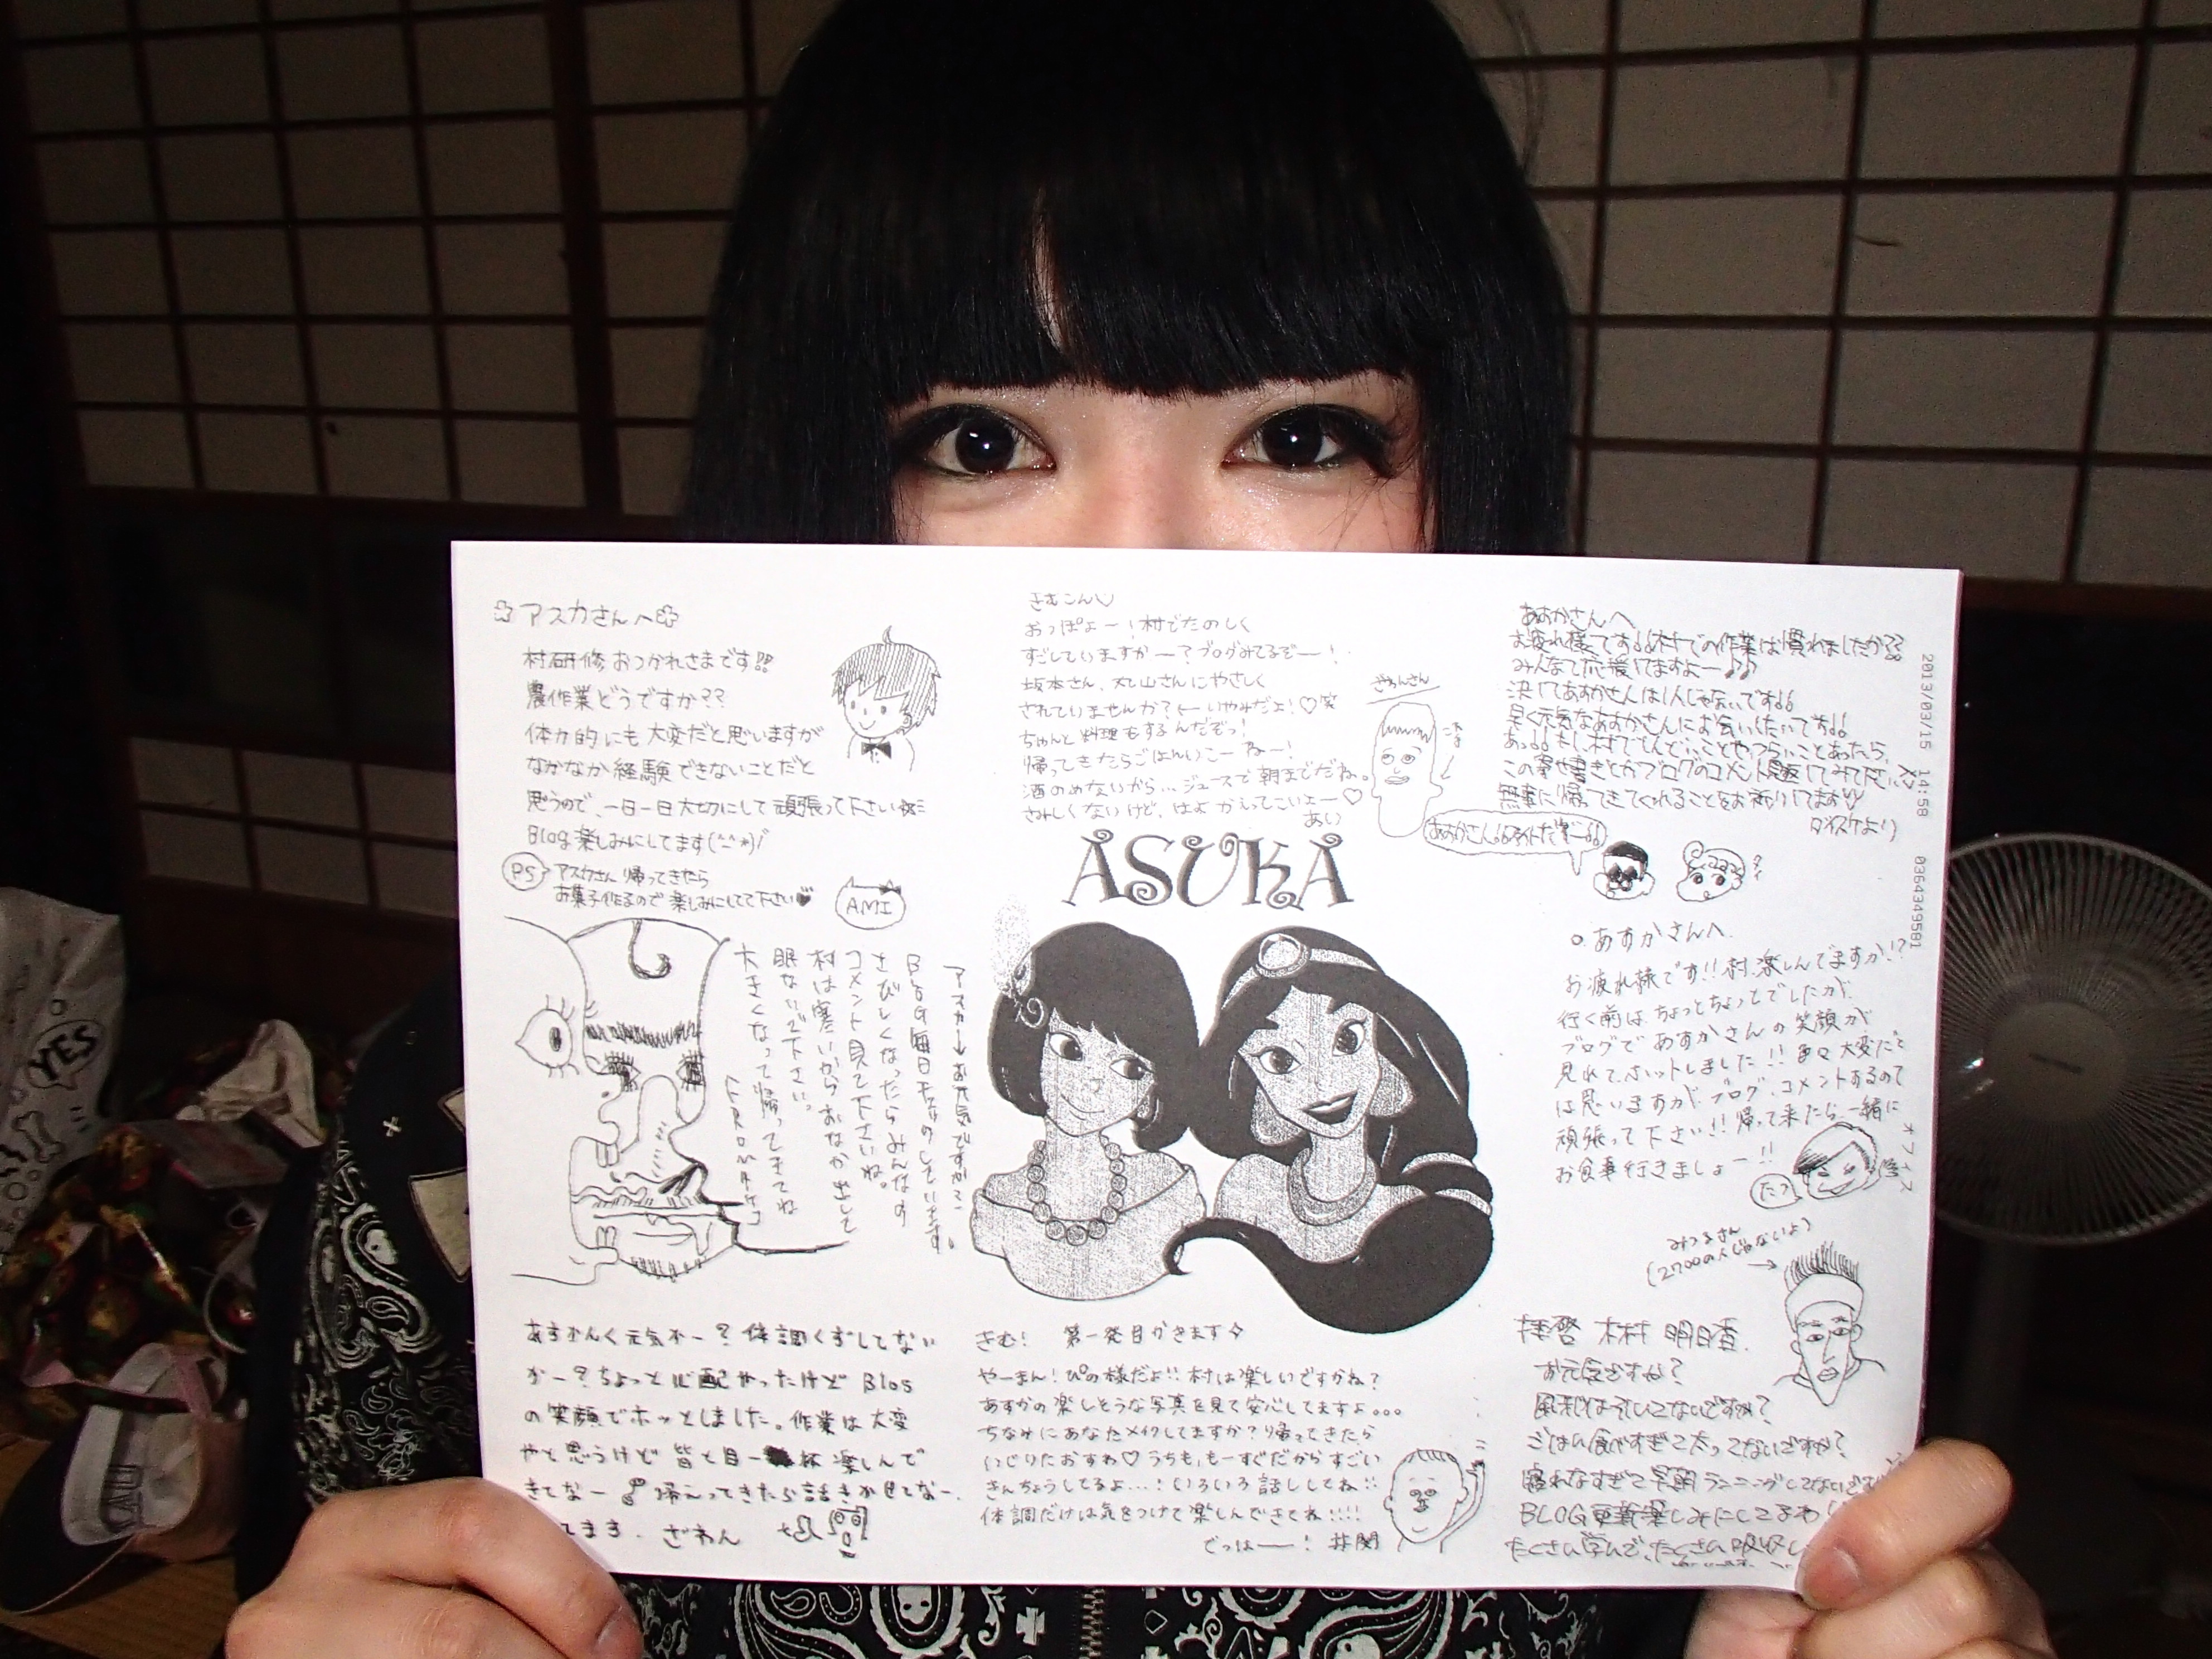 アスカさんへ
村研修おつかれさまです!!
農作業どうですか??
体力的にも大変だと思いますが
なかなか経験できないことだと
思うので、一日一日大切にして頑張って下さい
Blog楽しみにしてます(^^*)/
PS アスカさん帰ってきたら
お菓子作るので楽しみにしてて下さい♥
AMI
きむこんへ
おっぽよ〜!村でたのしく
すごしていますかー?ブログみてるぞー!
坂本さん、丸山さんにやさしく
されていませんか?←いやみだよ!♡笑
ちゃんと料理もするんだぞっ!
帰ってきたらごはんいこーねー!
酒のめないから...ジュースで朝までだね。
さみしくないけど、はよかえってこいよー♡
あい
ざわんさん
あすかさんへ
お疲れ様です!!村での作業は慣れましたか??
みんなで応援してますよー♪♪
決してあすかさんは1人じゃないです!!
早く元気なあすかさんにお会いしたいです!!
あっ!!もし村でしんどいことやつらいことあったら、
この寄せ書きとかブログのコメント見返してみて下さい
無事に帰ってきてくれることをお祈りしてます
ダイスケより
2013/03/15 14:58 0364349581
ASUKA
アスカー→お元気ですか?
BloG毎日たのしんでいます。
さびしくなったらみんなの
コメント見て下さいね。
村は寒いからおなか出して
眠らないで下さい。
大きくなって帰ってきてね
あすかさんへ
お疲れ様です!!村、楽しんでますか!?
行く前はちょっとちょっとでしたが、
ブログであすかさんの笑顔が
見れてホットしました!!色々大変だと
は思いますがブログ、コメントあるので
頑張って下さい!!帰って来たら一緒に
お食事行きましょー!!
オフィス
みつるさん
(2700の人じゃないよ)
あすかんく元気かー?体調くずしてない
かー?ちょっと心配やったけどBlog
の笑顔でホッとしました。作業は大変
やと思うけど皆と目一杯楽しんで
きてなー 帰ってきたら話きかせてなー、
てます。ざわん
きむ! 第一発目かきます
やーまん!ぴの様だよ!!村は楽しいですかね?
あすかの楽しそうな写真を見て安心してますよ。。。
ちなみにあなたメイクしてますか?帰ってきたら
いじりたおすわ♡うちも、もーすぐだからすごい
きんちょうしてるよ...!いろいろ話ししてね!!
体調だけは気をつけて楽しんできてね!!!!
でっはーー! 井関
拝啓 木村 明日香.
お元気ですか?
風邪はひいてないですか?
ごはん食べすぎて太ってないですか?
BLOG更新楽しみにしてるわ
たくさん学んで、たくさん吸収し
YES